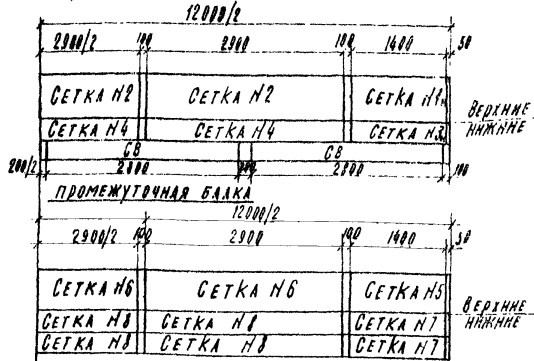 12000/2
2900/2 100 2900 100 1400 50
СЕТКА N2 СЕТКА N2 СЕТКА N1н
ВЕРХНИЕ
СЕТКА N4 СЕТКА N4 СЕТКА N3н
НИЖНИЕ
С8 С8
200/2 2800 2800 100
ПРОМЕЖУТОЧНАЯ БАЛКА
12000/2
2900/2 100 2900 100 1400 50
СЕТКА N6 СЕТКА N6 СЕТКА N5
ВЕРХНИЕ
СЕТКА N8 СЕТКА N8 СЕТКА N7
НИЖНИЕ
СЕТКА N8 СЕТКА N8 СЕТКА N7